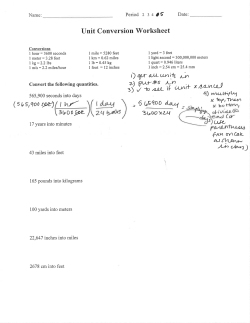 Name: Period 1 3 4 #5 Date:
Unit Conversion Worksheet
Conversions
1 hour = 3600 seconds 1 mile = 5280 feet 1 yard = 3 feet
1 meter = 3.28 feet 1 km = 0.62 miles 1 light second = 300,000,000 meters
1 kg = 2.2 lbs 1 lb = 0.45 kg 1 quart = 0.946 liters
1 m/s = 2.2 miles/hour 1 foot = 12 inches 1 inch = 2.54 cm = 25.4 mm
1) get all units in
2) put #s in
3) ✓ to see if units cancel
4) multiply
top, then
bottom,
divide
use
parentheses
Convert the following quantities.
565,900 seconds into days
(565,900 sec)(1 hr / 3600 sec)(1 day / 24 hrs) = 565900 day / 3600x24
17 years into minutes
43 miles into feet
165 pounds into kilograms
100 yards into meters
22,647 inches into miles
2678 cm into feet